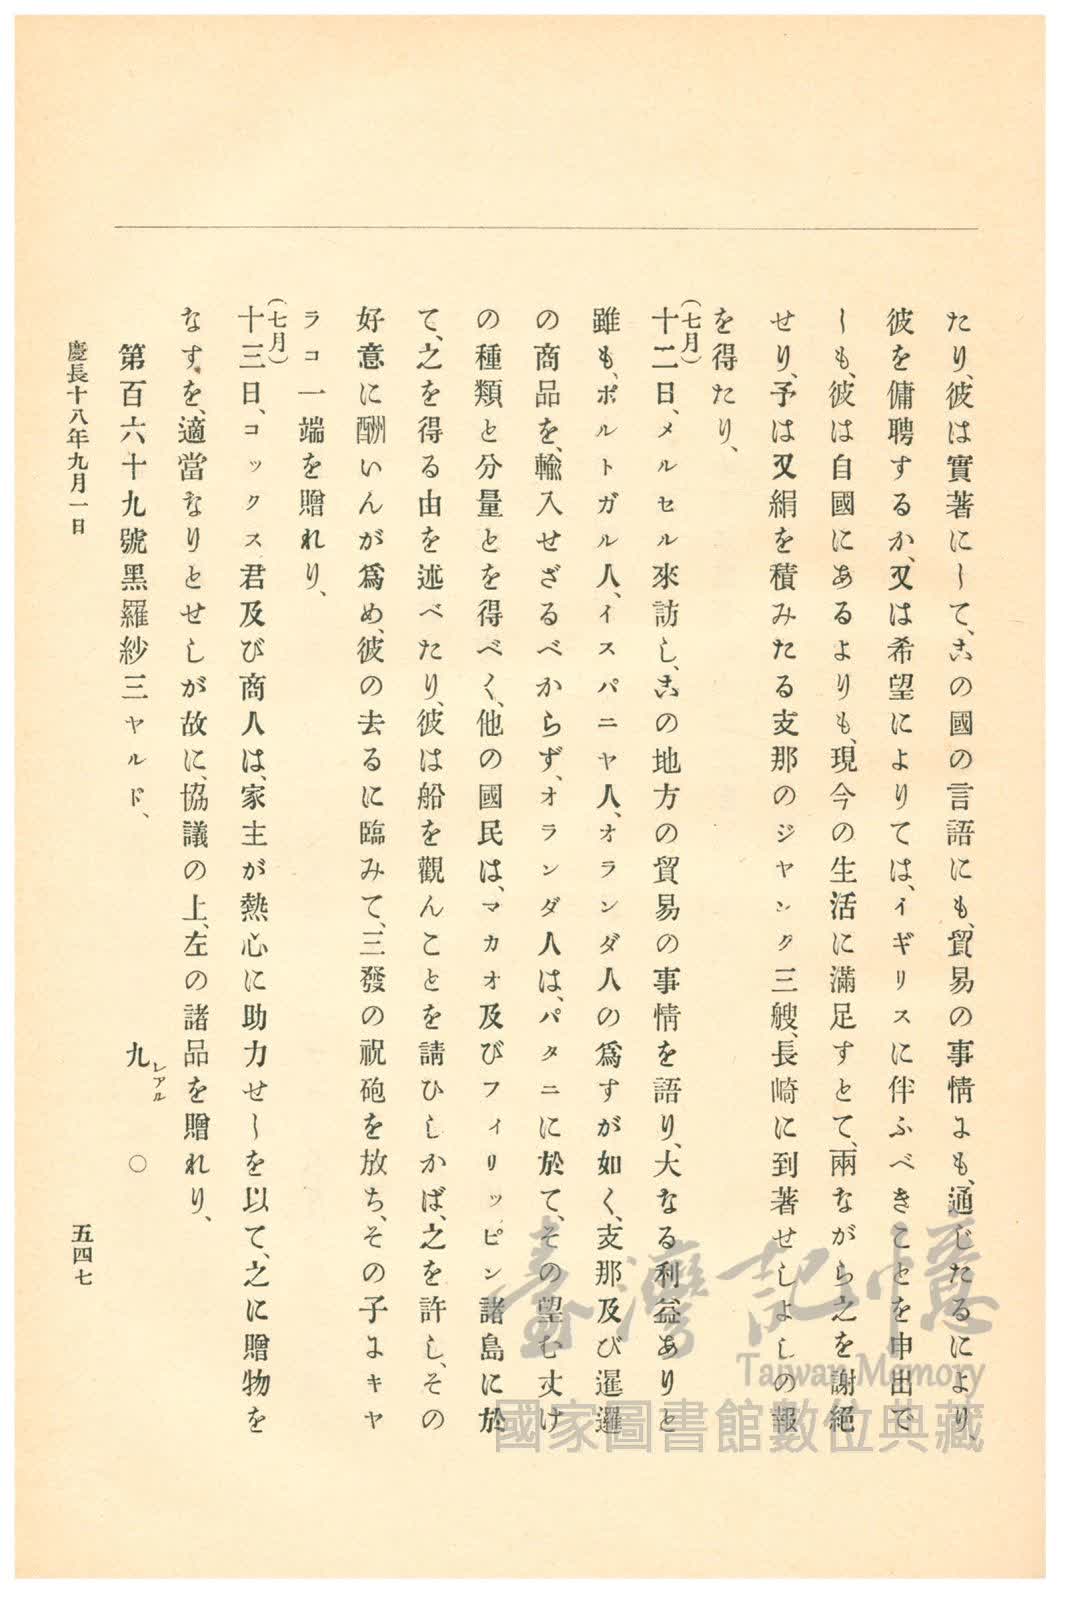 たり、彼は實著にして、この國の言語にも、貿易の事情にも、通じたるにより、
彼を傭聘するか、又は希望によりては、イギリスに伴ふべきことを申出で
しも、彼は自國にあるよりも、現今の生活に滿足すとて、兩ながら之を謝絕
せり、予は又絹を積みたる支那のジヤンク三艘、長崎に到著せしよしの報
を得たり、
(七月)
十二日、メルセル來訪し、この地方の貿易の事情を語り、大なる利益ありと
雖も、ポルトガル人、イスパニヤ人、オランダ人の爲すが如く、支那及び暹邏
の商品を、輸入せざるべからず、オランダ人は、パタニに於て、その望む丈け
の種類と分量とを得べく、他の國民は、マカオ及びフィリッピン諸島に於
て、之を得る由を述べたり、彼は船を觀んことを請ひしかば、之を許し、その
好意に酬いんが爲め、彼の去るに臨みて、三發の祝砲を放ち、その子にキヤ
ラコ一端を贈れり、
(七月)
十三日、コックス君及び商人は、家主が熱心に助力せしを以て、之に贈物を
なすを、適當なりとせしが故に、協議の上、左の諸品を贈れり、
第百六十九號黑羅紗三ヤルド、 九レアル ○
慶長十八年九月一日 五四七
臺灣記憶
Taiwan Memory
國家圖書館數位典藏